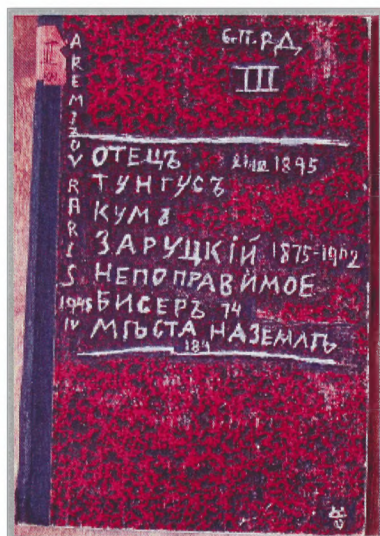 б.П.РД
III
A REMIZOV PARIS
1948
IV
ОТЕЦЪ 1895
ТУНГУСЪ
КУМЪ
ЗАРУЦКІЙ 1875-1902
НЕПОПРАВИМОЕ
БИСЕРЪ 74
МѢСТА НАЗЕМЛѢ
184